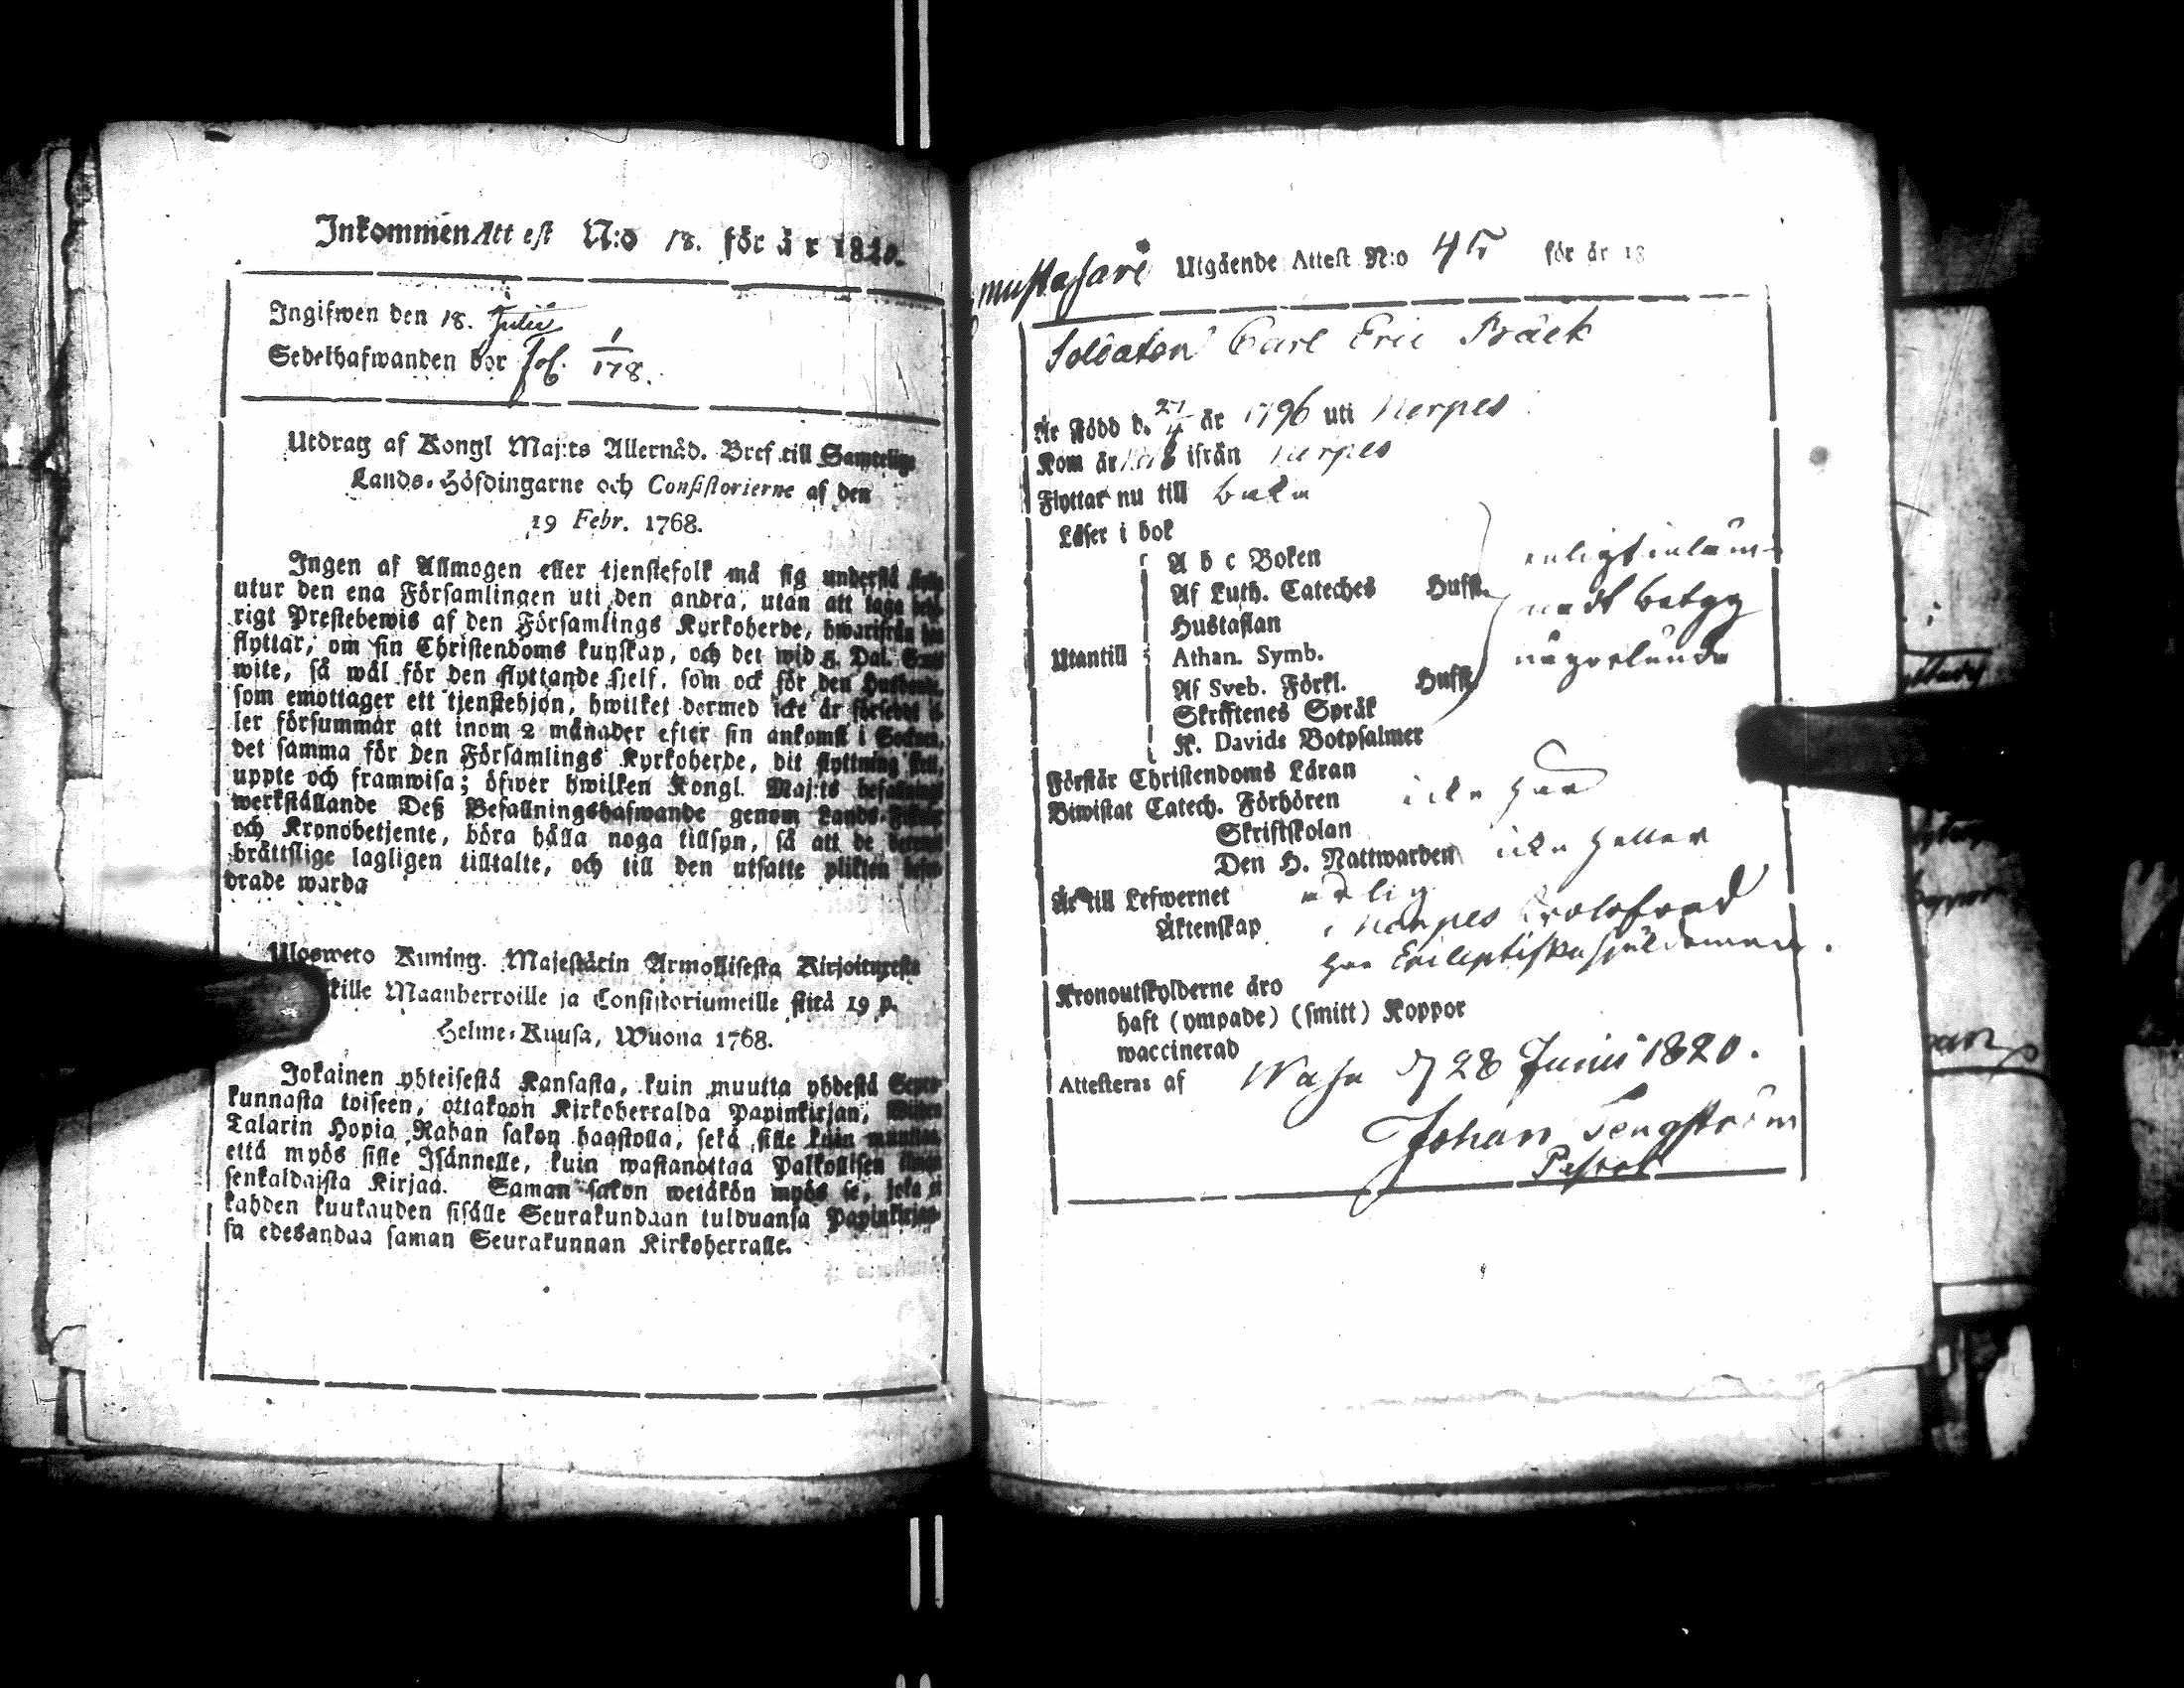 Inkommen Attest N:o 18. för år 1820.
Ingifwen den 18. Julii
Sedelhafwanden bor fol. 1/178.
Utdrag af Kongl Maj:ts Allernåd. Bref till Samtelige
Lands-Höfdingarne och Consistorierne af den
19 Febr. 1768.
Ingen af Allmogen eller tjenstefolk må sig understå flytta
utur den ena Församlingen uti den andra, utan att taga behö-
rigt Prestebewis af den Församlings Kyrkoherde, hwarifrån han
flyttar, om sin Christendoms kunskap, och det wid 5. Dal. S:mts
wite, så wäl för den flyttande sjelf, som ock för den Husbonde,
som emottager ett tjenstehjon, hwilket dermed icke är försedt el-
ler försummar att inom 2 månader efter sin ankomst i Socknen,
det samma för den Församlings Kyrkoherde, dit flyttning skett,
uppte och framwisa; öfwer hwilken Kongl. Maj:ts befallnings
werkställande Deß Befallningshafwande genom Lands-Fiskaler
och Kronobetjente, böra hålla noga tillsyn, så att de
brättslige lagligen tilltalte, och till den utsatte plikten befor-
drade warda
Ulosweto Kuning. Majestätin Armollisesta Kirjoituxesta
kille Maanherroille ja Consistoriumeille siitä 19 p.
Helme-Kuusa, Wuona 1768.
Jokainen yhteisestä Kansasta, kuin muutta yhdestä Seura-
kunnasta toiseen, ottakoon Kirkoherralda Papinkirjan, Wiiden
Talarin Hopia Rahan sakon haastolla, sekä sille kuin muuttaa,
että myös sille Isännelle, kuin wastanottaa Palkollisen ilman
senkaldaista Kirjaa. Saman sakon wetäkön myös se, joka ei
kahden kuukauden sisälle Seurakundaan tulduansa Papinkirjaan-
sa edesandaa saman Seurakunnan Kirkoherralle.
mustasari Utgående Attest N:o 45 för år 18
Soldaten Carl Eric Bäck
Är Född d. 27 år 1796 uti Nerpes
Kom år 1818 ifrån Nerpes
Flyttar nu till
Läser i bok
A b c Boken
Af Luth. Cateches Huffl.
Hustaflan
Utantill Athan. Symb.
Af Sveb. Förkl. Huffl.
Skriftenes Språk
K. Davids Botpsalmer
enligt inläm-
nadt betyg
någorlunda
Förstår Christendoms Läran
Biwistat Catech. Förhören icke här
Skriftskolan
Den H. Nattwarden icke heller
Är till Lefwernet ärlig
Äktenskap i Nerpes trolofvad
har Epileptiska sjukdomen.
Kronoutskylderne äro
haft (ympade) (smitt) Koppor
waccinerad
Attesteras af Wasa d 28 Junii 1820.
Johan Tengström
Pastor